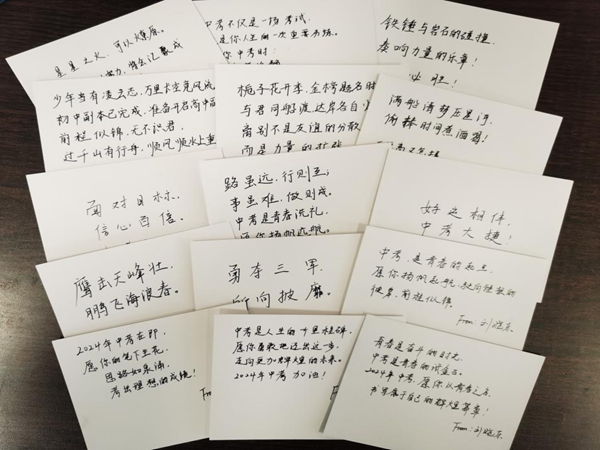 星星之火，可以燎原。
中考不仅是一场考试，
是你人生的一次重要历练。
你中考时：
铁锤与岩石的碰撞，
奏响力量的乐章！
少年当有凌云志，万里长空竞风流
初中副本已完成，准备开启高中副
前程似锦，无不识君，
过千山有行舟，顺风顺水上重
栀子花开季，金榜题名时
与君同船渡，达岸各自
离别不是友谊的分散
而是力量的扩张
满船清梦压星河，
偷耕时间煮酒喝！
面对目标，
信心百倍。
路虽远，行则至；
事虽难，做则成。
中考是青春洗礼，
愿你扬帆远航。
好运相伴，
中考大捷！
鹰击天峰壮，
鹏飞海浪春。
勇夺三军，
所向披靡。
中考，是青春的起点，
愿你扬帆起航，驶向理想的
彼岸，前程似锦。
From：刘晓东
2024年中考在即，
愿你的笔下生花，
思路如泉涌，
考出理想的成绩！
From
中考是人生的一个里程碑，
愿你勇敢地迈出这一步，
走向更加辉煌的未来。
2024年中考加油！
青春是奋斗的时光，
中考是青春的试金石。
2024年中考，愿你以青春之名，
书写属于自己的辉煌篇章！
From：刘晓东